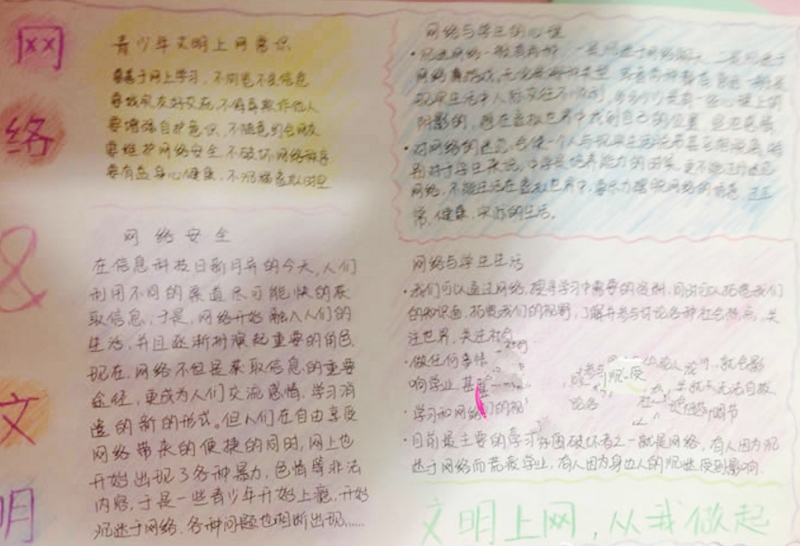 网
络
&
文
明
青少年文明上网常识
要善于网上学习,不浏览不良信息
要诚实友好交流,不侮辱欺诈他人
要增强自护意识,不随意约会网友
要维护网络安全,不破坏网络秩序
要有益身心健康,不沉溺虚拟时空
网络安全
在信息科技日新月异的今天,人们
利用不同的渠道尽可能快的获
取信息,于是,网络开始融入人们的
生活,并且逐渐扮演起重要的角色.
现在,网络不但是获取信息的重要
途径,更成为人们交流感情,学习消
遣的新的形式。但人们在自由享受
网络带来的便捷的同时,网上也
开始出现了各种暴力,色情等非法
内容,于是一些青少年开始上瘾,开始
沉迷于网络.各种问题也相断出现……
网络与学生的心理
·沉迷网络一般有两种,一是沉迷于网络聊天,二是沉迷于
网络
现实生活中人际交往不顺利,或多或少是有一些心理上的
阴影的,想在虚拟世界中找到自己的位置
·对网络的迷恋,会使一个人与现实生活
别对于学生来说,中学是培养能力的时候,更不能过分迷恋
网络,不能生活在虚拟世界中,要尽力摆脱网络的
常,健康,实际的生活。
网络与学生生活
·我们可以通过网络,搜寻学习中需要的资料,同时可以拓宽我们
的知识面,拓宽我们的视野,了解并参与讨论各种社会热点,关
注世界,关注社会.
·做任何事情
响学业,甚至
·学习和网络
·目前最主要的学习氛围破坏者之一就是网络,有人因为沉
迷于网络而荒废学业,有人因为身边人的沉迷受到影响.
文明上网,从我做起